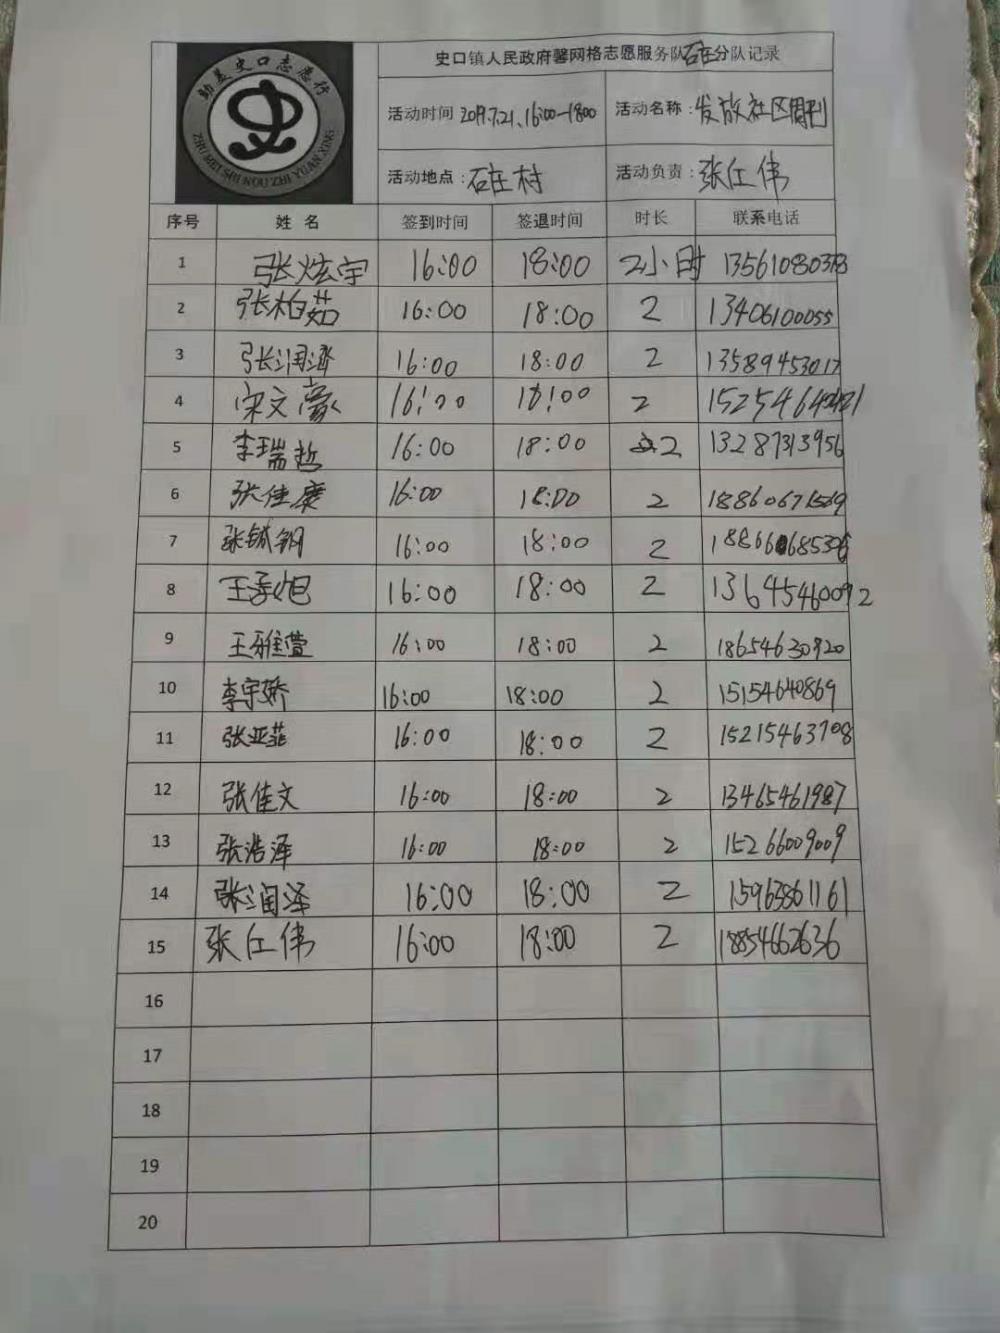 助美史口志愿行
ZHU MEI SHI KOU ZHI YUAN XING
史口镇人民政府馨网格志愿服务队石庄分队记录
活动时间 2019.7.21、16:00-18:00 活动名称:发放社区周刊
活动地点:石庄村 活动负责:张仕伟
序号 姓名 签到时间 签退时间 时长 联系电话
1 张炫宇 16:00 18:00 2小时
2 张柏茹 16:00 18:00 2 13406100055
3 张润泽 16:00 18:00 2 13589453017
4 宋文豪 16:00 18:00 2
5 李瑞哲 16:00 18:00 2 13287313956
6 张佳 16:00 18:00 2
7 张钢 16:00 18:00 2
8 王 16:00 18:00 2 13645460092
9 王雅萱 16:00 18:00 2 18654630920
10 李宇娇 16:00 18:00 2 15154640869
11 张亚菲 16:00 18:00 2 15215463708
12 张佳文 16:00 18:00 2 13465461987
13 张浩泽 16:00 18:00 2 15266009009
14 张润泽 16:00 18:00 2 15963861161
15 张仕伟 16:00 18:00 2 18854662636
16
17
18
19
20